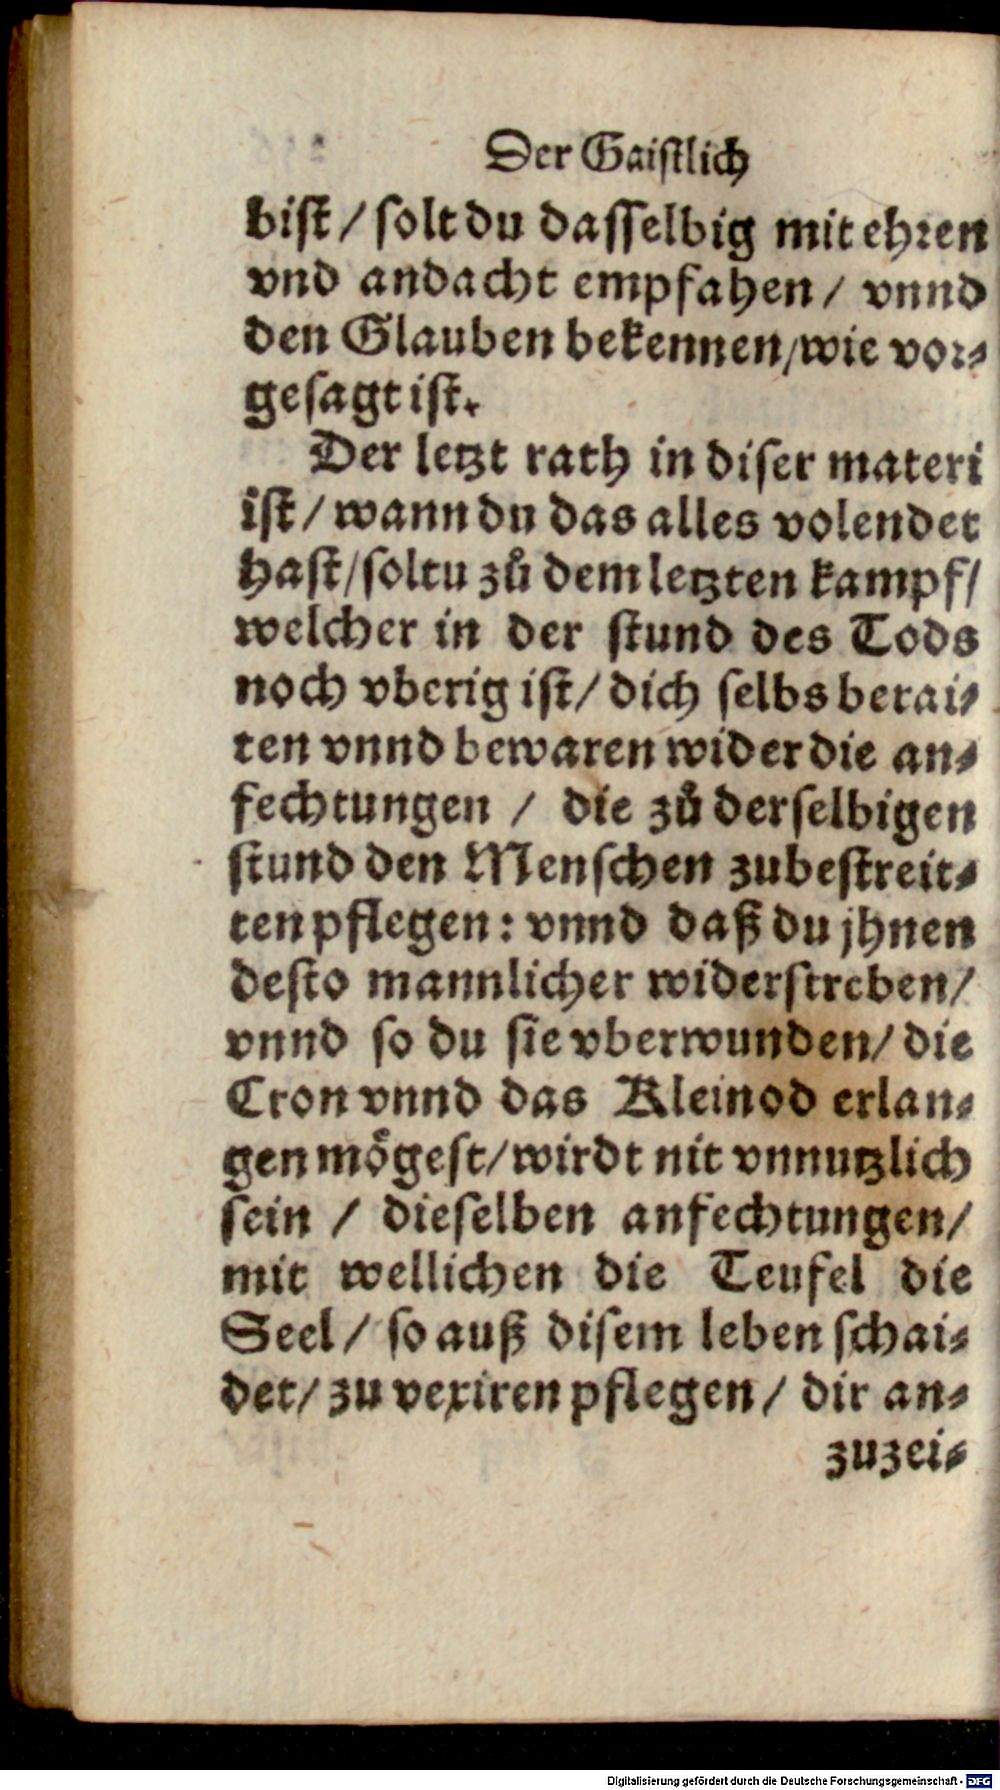 Der Gaistlich
bist / solt du dasselbig mit ehren
vnd andacht empfahen / vnnd
den Glauben bekennen / wie vor⸗
gesagt ist.
Der letzt rath in diser materi
ist / wann du das alles volendet
hast / soltu zů dem letzten kampf /
welcher in der stund des Tods
noch vberig ist / dich selbs berai⸗
ten vnnd bewaren wider die an⸗
fechtungen / die zů derselbigen
stund den Menschen zubestreit⸗
ten pflegen: vnnd daß du jhnen
desto mannlicher widerstreben /
vnnd so du sie vberwunden / die
Cron vnnd das Kleinod erlan⸗
gen moͤgest / wirdt nit vnnutzlich
sein / dieselben anfechtungen /
mit wellichen die Teufel die
Seel / so auß disem leben schai⸗
det / zu vexiren pflegen / dir an⸗
zuzei⸗
Digitalisierung gefördert durch die Deutsche Forschungsgemeinschaft - DFG